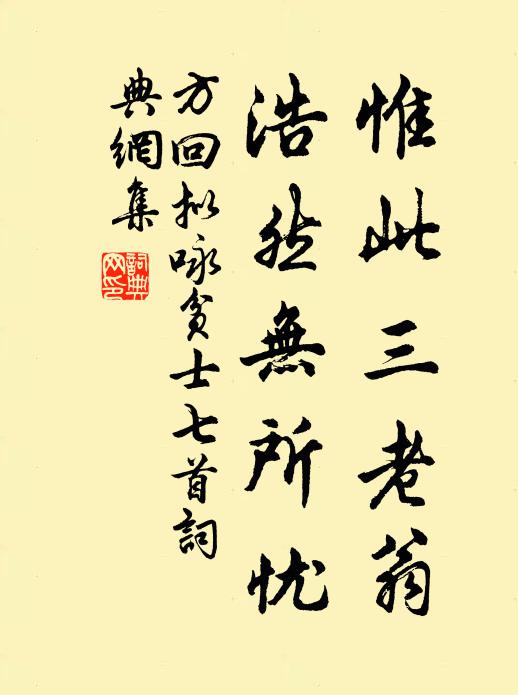 惟此三老翁
浩然無所忧
方回拟咏贫士七首詞
典網集
詞典网印